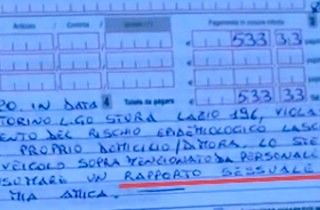 Articolo Comma
Pagamento in misura ridotta
533 33
4 Totale da pagare
533 33
20. IN DATA
TORINO L.GO STURA LAZIO 196, VIOLA
ENTO DEL RISCHIO EPIDEMIOLOGICO LASC
PROPRIO DOMICILIO/DIMORA. LO STE
VEICOLO SOPRA MENZIONATO DA PERSONALE
SUMARE UN RAPPORTO SESSUALE
MIA AMICA.